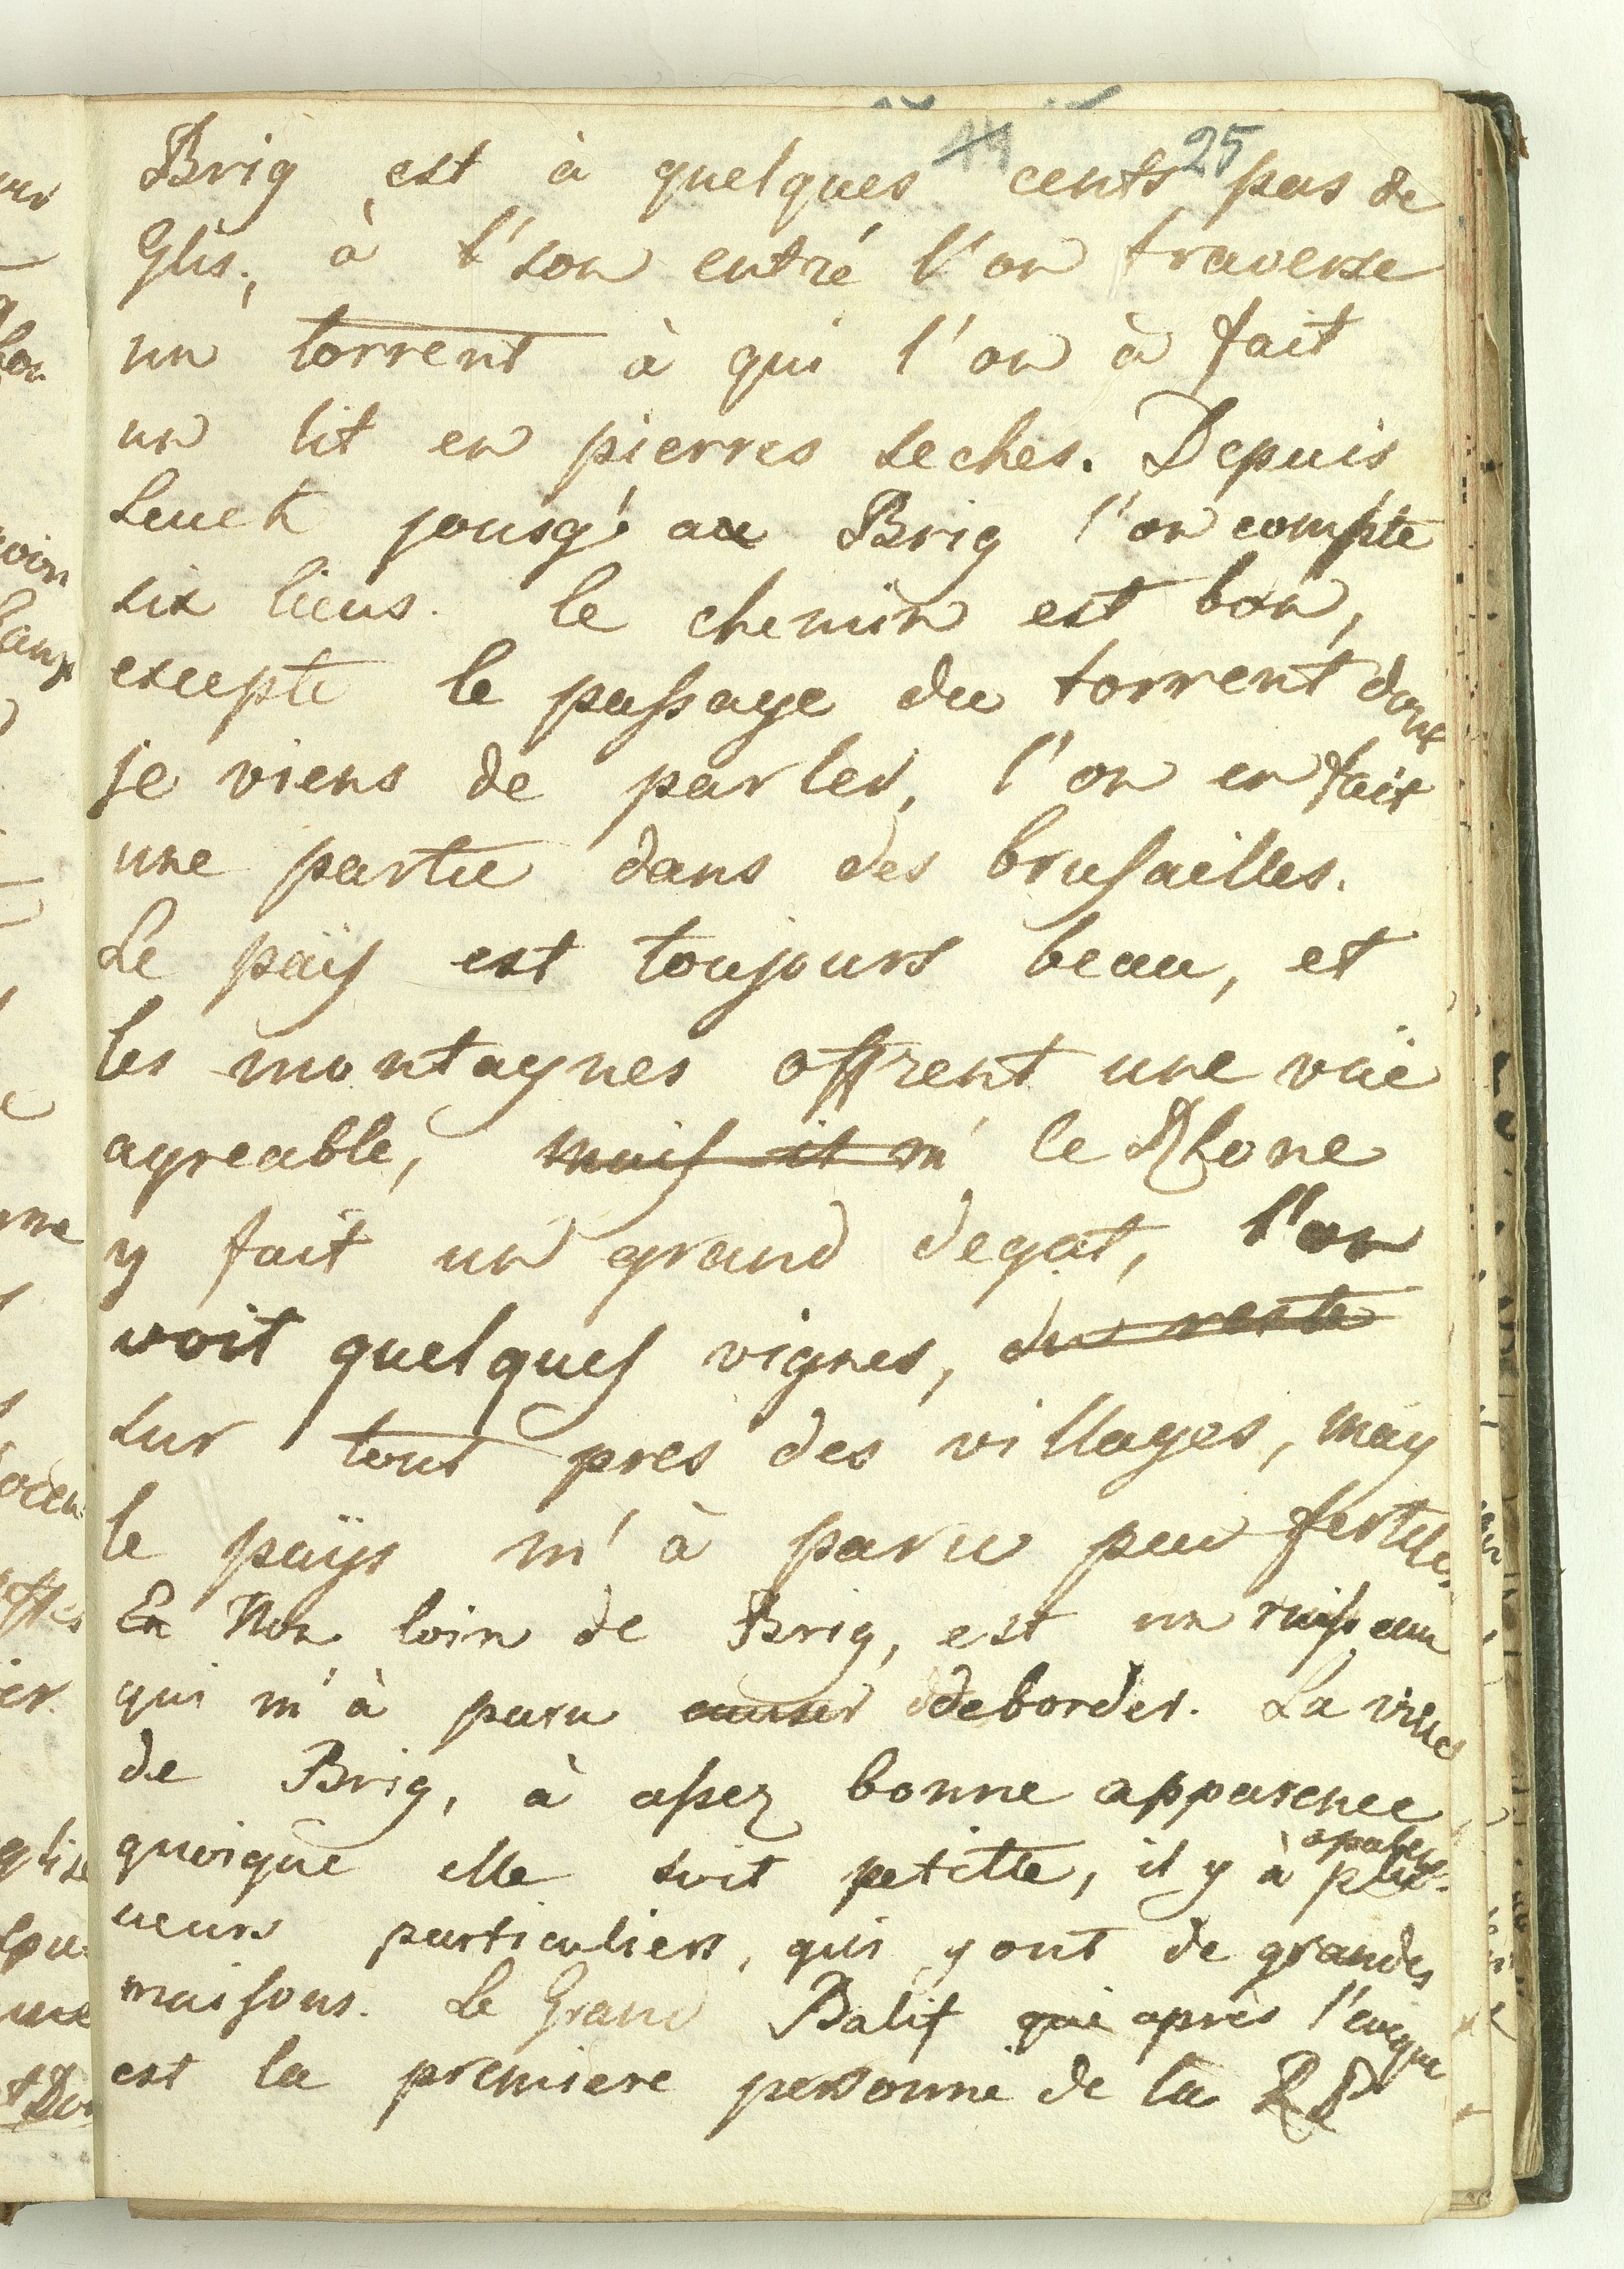 25
Brig est à quelques cents pas de
Glis, à l'son entré l'on traverse
un torrent à qui l'on à fait
un lit en pierres seches. Depuis
Leuck jousq' au Brig l'on compte
six lieus. le chemin est bon,
excepte le passage du torrent dont
je viens de parler, l'on en fait
une partie dans des brusailles.
Le païs est toujours beau, et
les montagnes offrent une vüe
agreable, mais il m' le Rhone
y fait un grand degat, l'on
voit quelques vignes, du reste
sur tout pres des villages, mais
le païs m'à paru peu fertile.
En Non loin de Brig, est un ruisseau
qui m'à paru debordes. La ville
de Brig, à assez bonne apparence
quoique elle soit petitte, il y à plus-
ieurs particuliers, qui y ont de grandes
maisons. Le Grand Balif qui après l'eveque
est la premiere personne de la RP